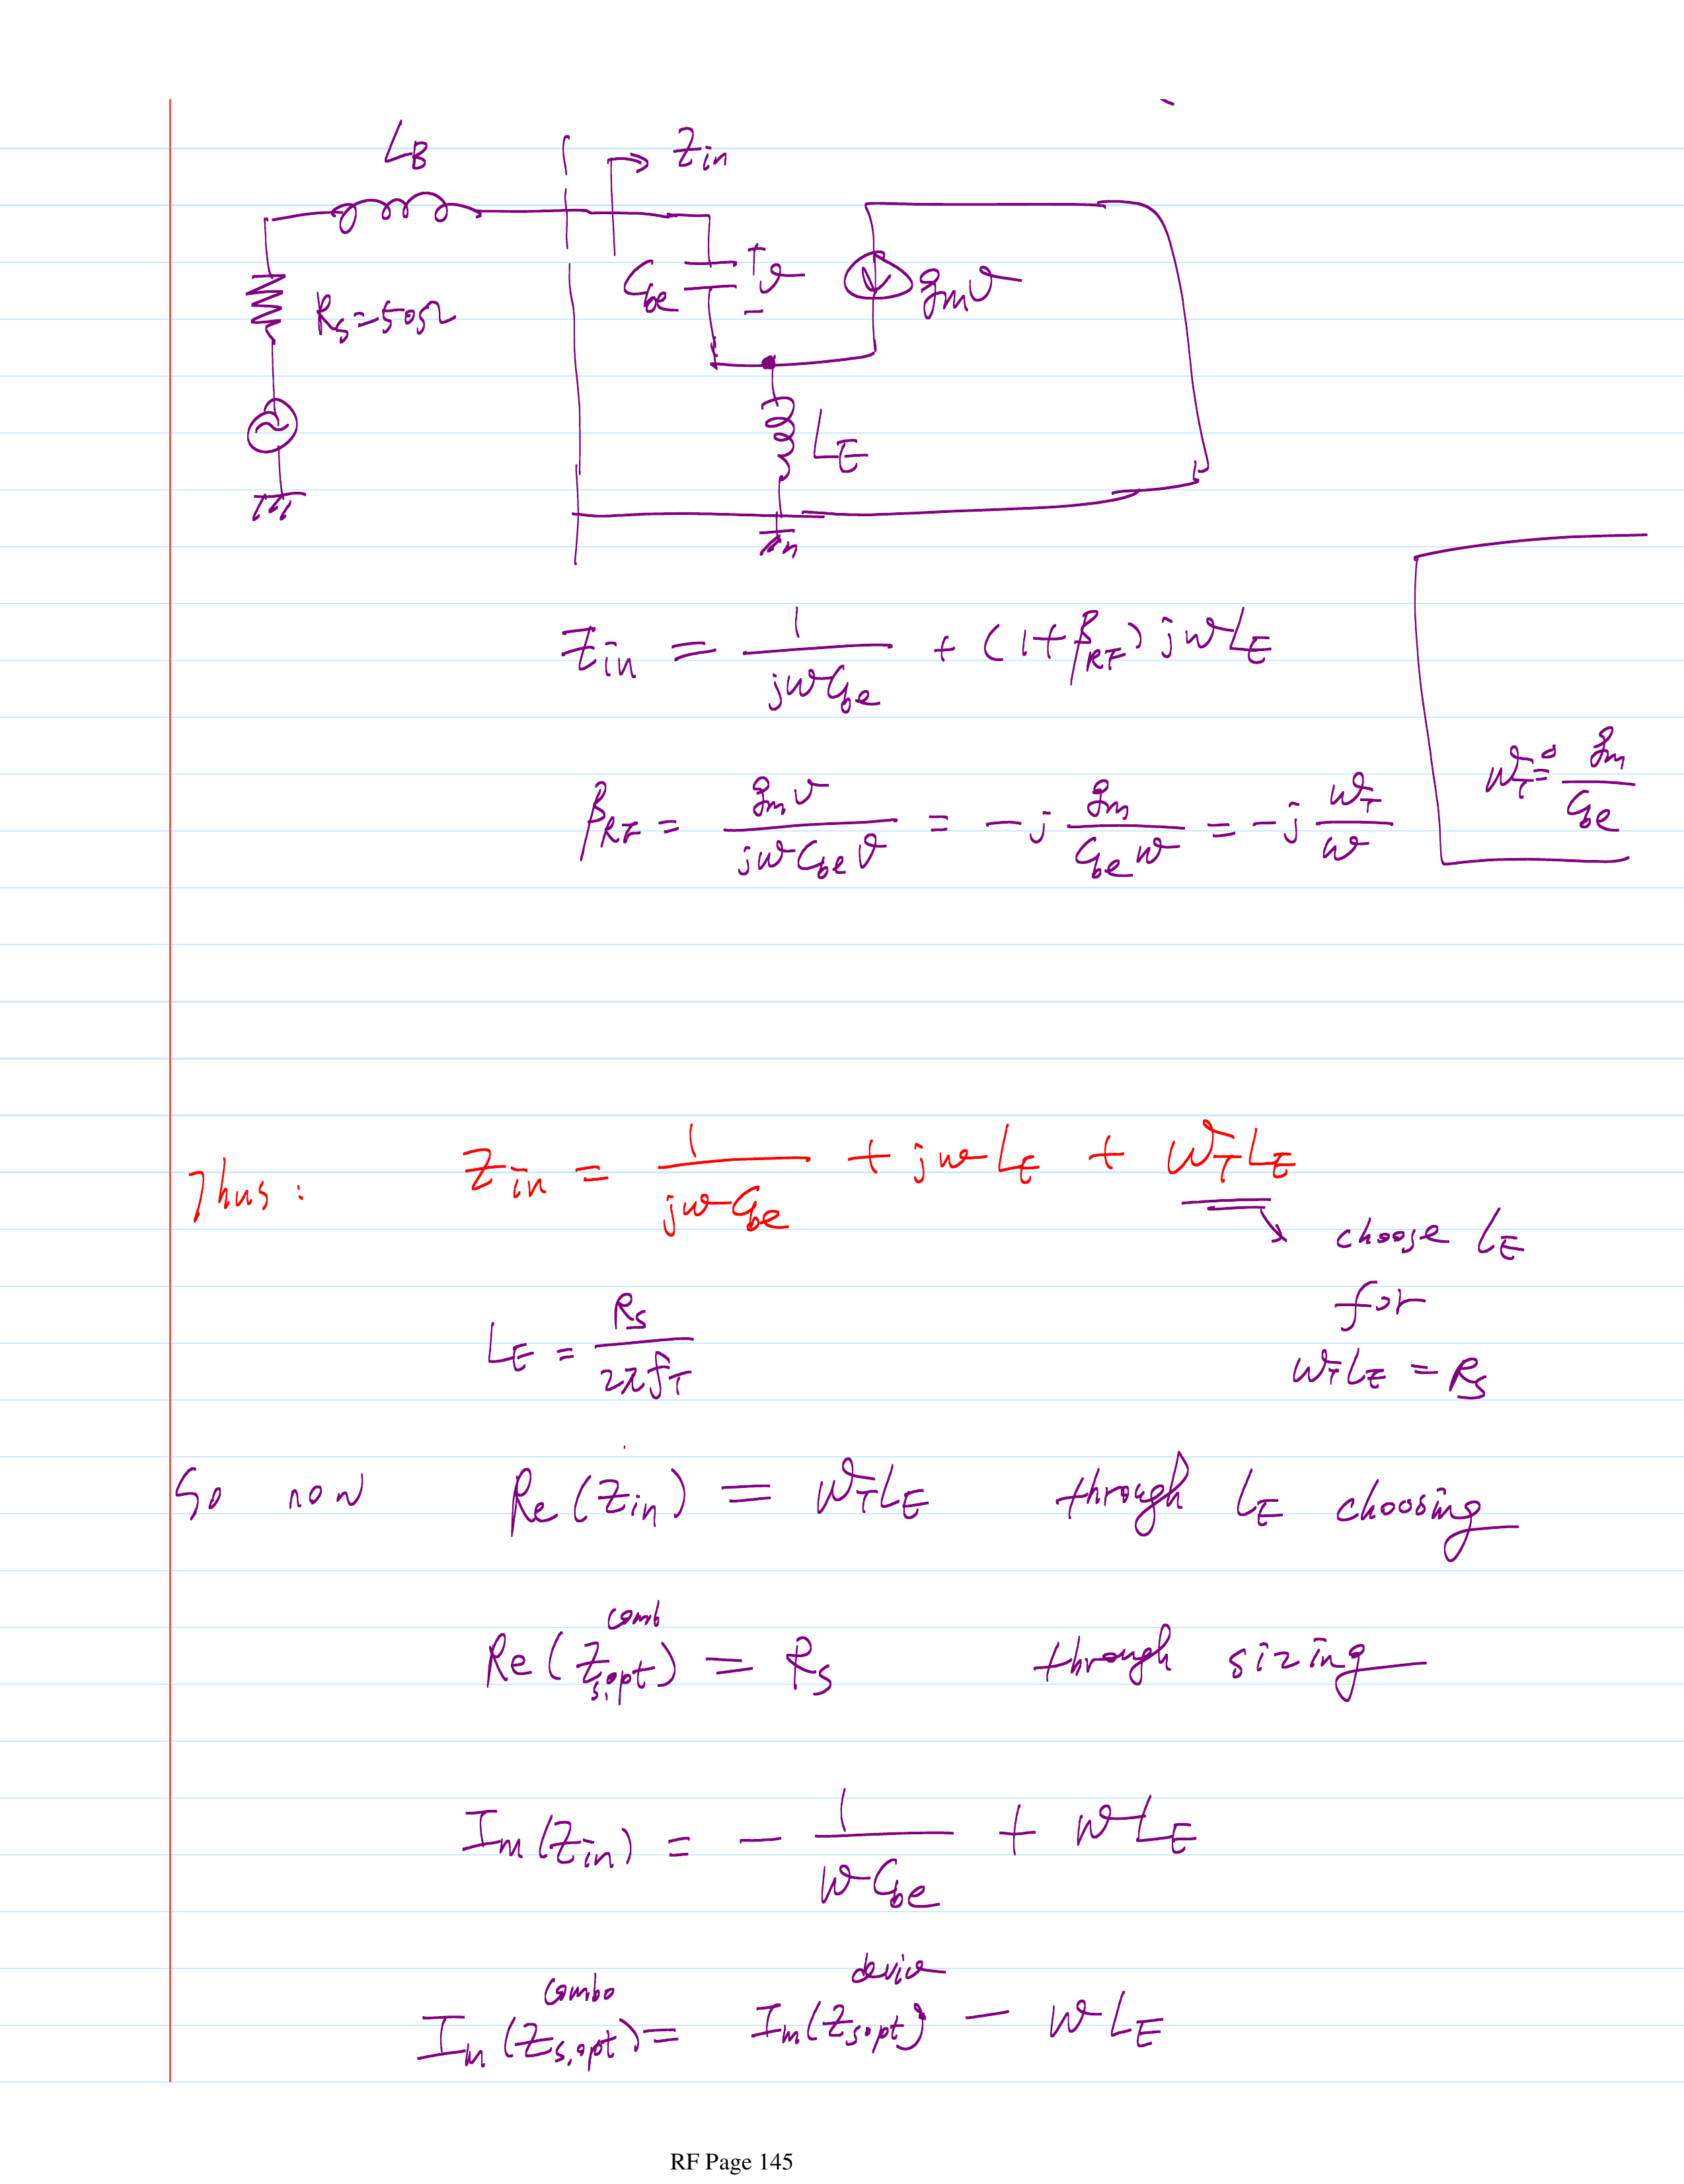 L_B
Z_in
R_S = 50Ω
C_be + v -
g_m v
L_E
Z_in = 1/(jωC_be) + (1+β_RF) jωL_E
β_RF = g_m v/(jωC_be v) = -j g_m/(C_be ω) = -j ω_T/ω
ω_T = g_m/C_be
Thus: Z_in = 1/(jωC_be) + jωL_E + ω_T L_E
choose L_E
for
L_E = R_S/(2πf_T)
ω_T L_E = R_S
So now Re(Z_in) = ω_T L_E through L_E choosing
Re(Z_s,opt^comb) = R_S through sizing
Im(Z_in) = - 1/(ωC_be) + ωL_E
Im(Z_s,opt^combo) = Im(Z_s,opt^device) - ωL_E
RF Page 145